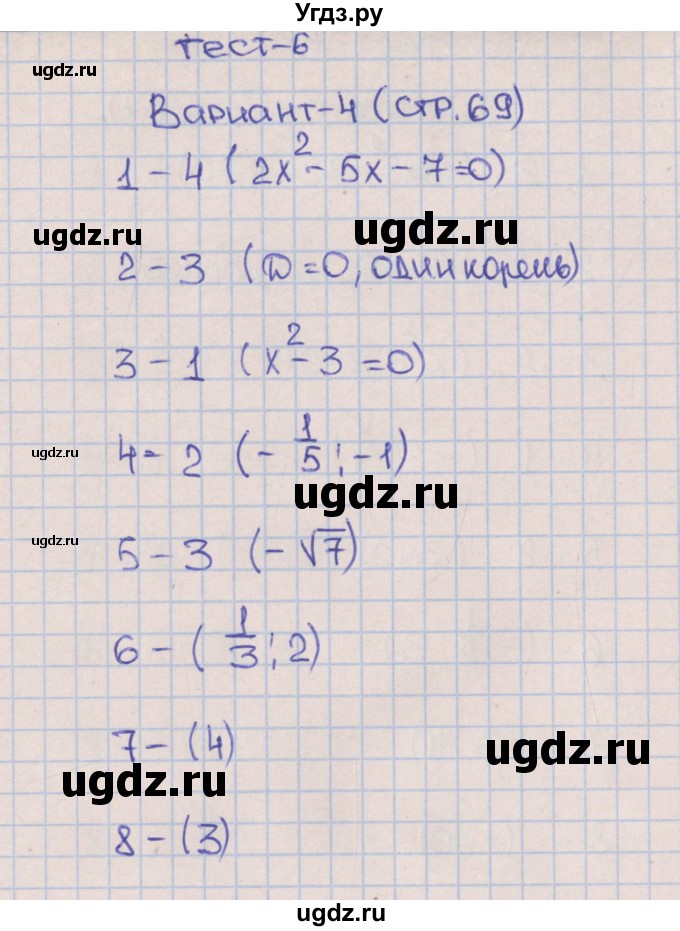 Угдз.ру
тест-6
ugdz.ru
ugdz.ru
Вариант-4 (стр.69)
1 - 4 ( 2x² - 5x - 7=0)
ugdz.ru
ugdz.ru
2 - 3 (D=0, один корень)
3 - 1 ( x² - 3 =0)
ugdz.ru
ugdz.ru
4 - 2 ( - 1/5 ; -1)
ugdz.ru
ugdz.ru
ugdz.ru
5 - 3 ( - √7)
6 - ( 1/3 ; 2)
7 - (4)
ugdz.ru
ugdz.ru
8 - (3)
ugdz.ru
ugdz.ru
ugdz.ru